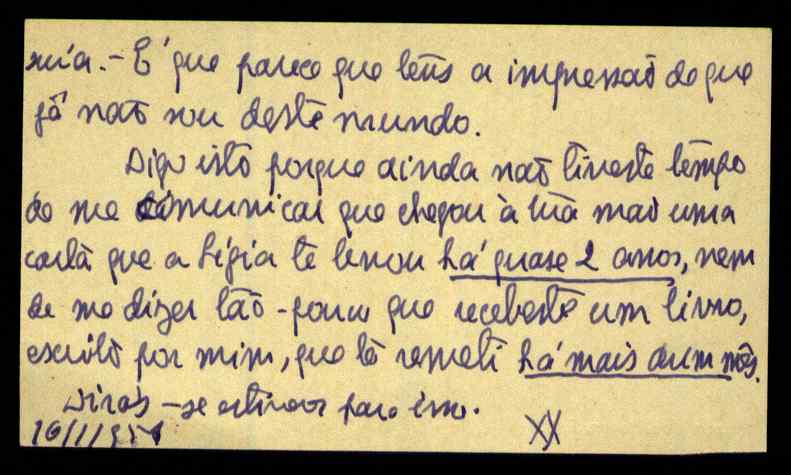 mia. - É que parece que tens a impressão de que
já não sou deste mundo.
Digo isto porque ainda não tiveste tempo
de me comunicar que chegou à tua mão uma
carta que a Lígia te levou há quase 2 anos, nem
de me dizer tão-pouco que recebeste um livro,
escrito por mim, que te remeti há mais dum mês.
Dirás - se para isso.
16/1/951
XX